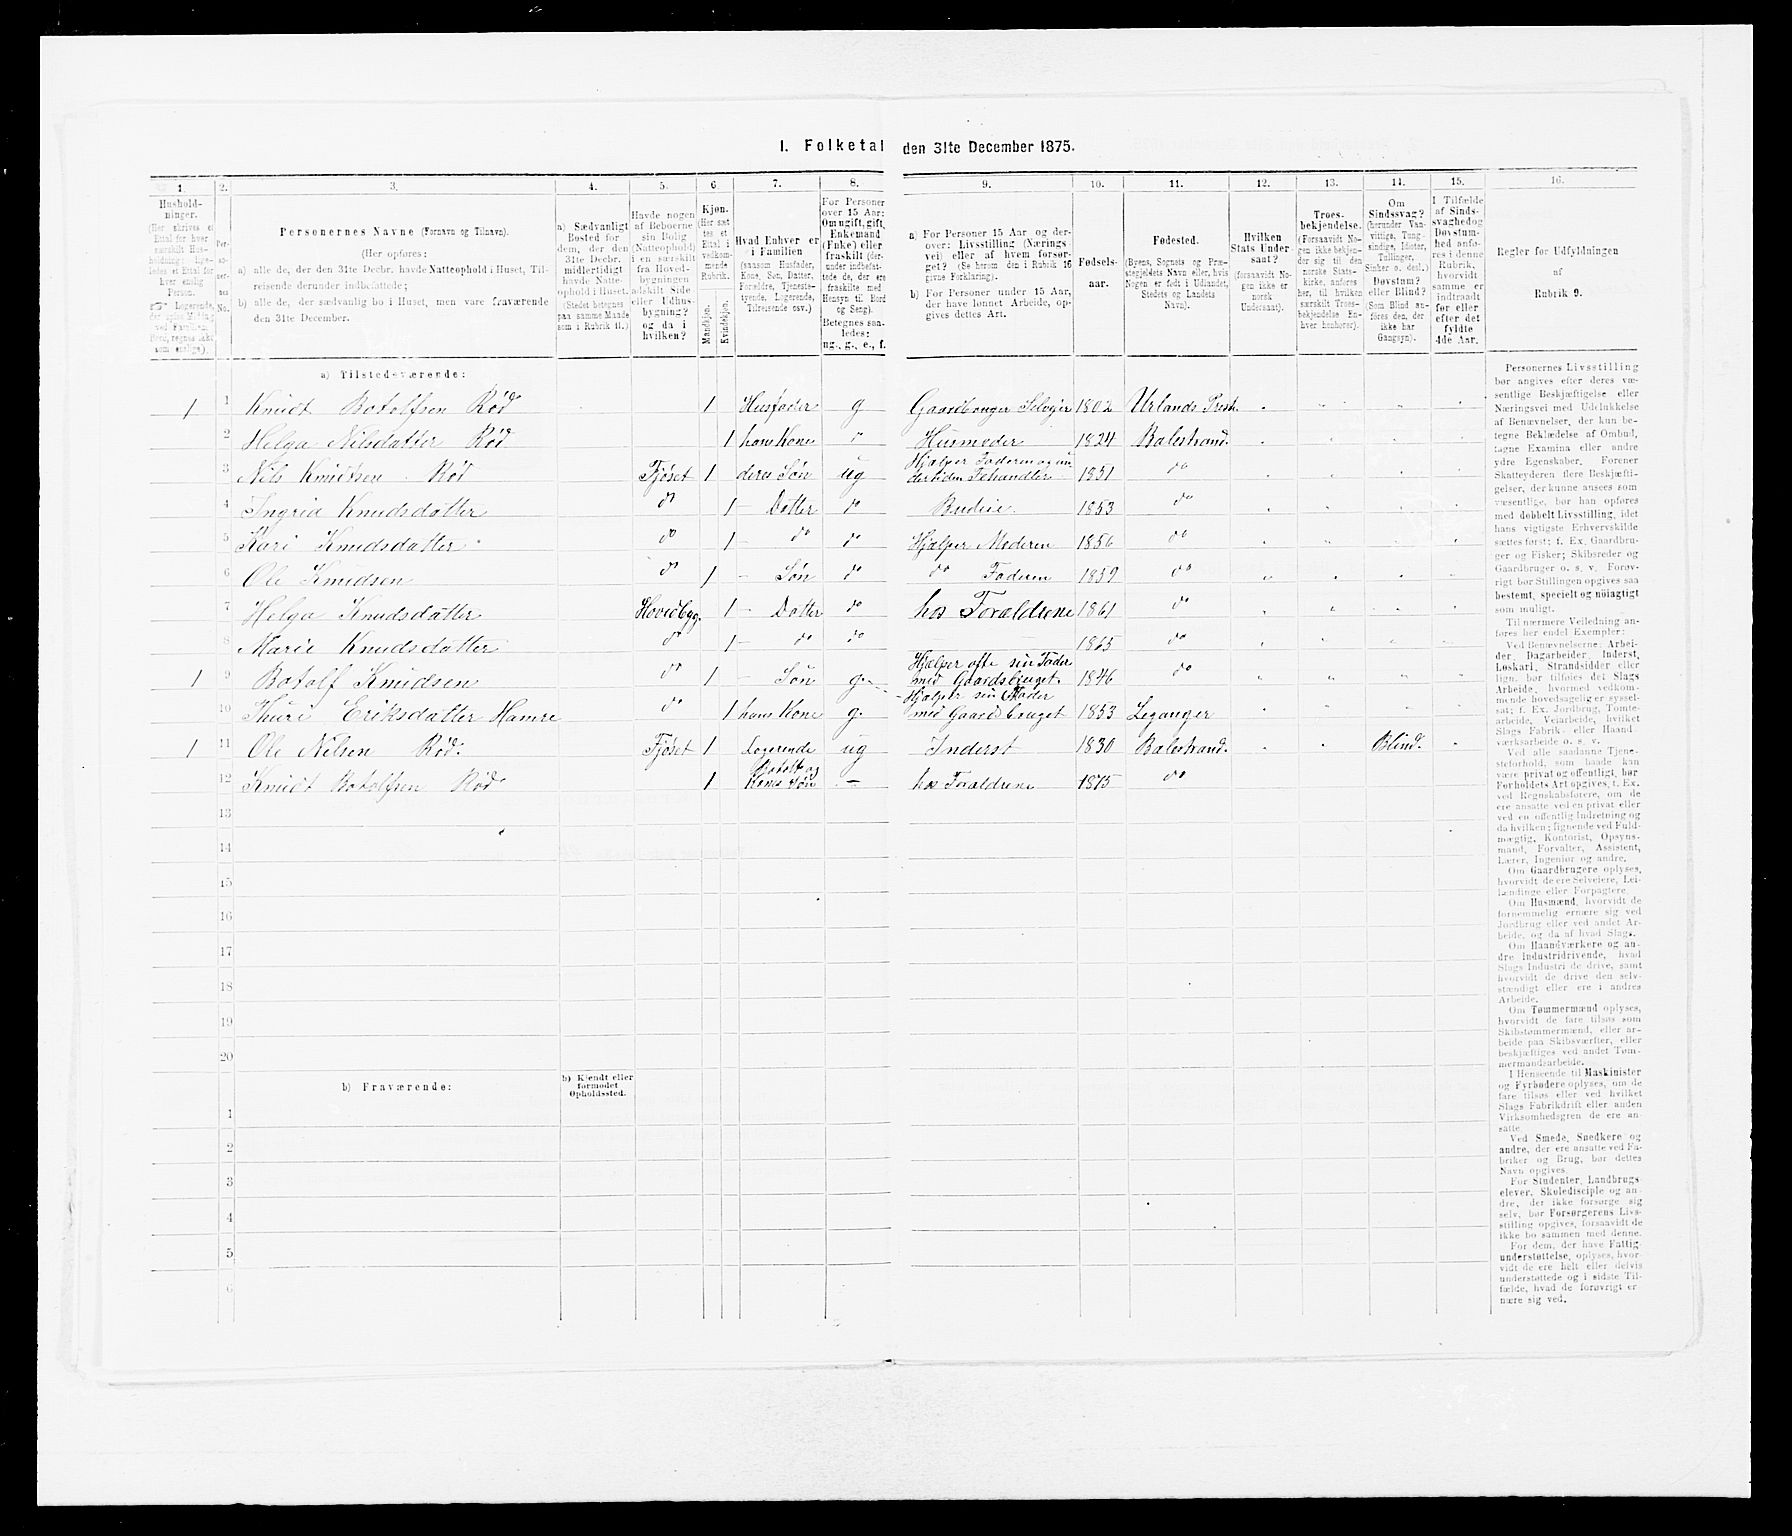 I. Folketal den 31te December 1875.
1. 2. 3. 4. 5. 6. 7. 8. 9. 10. 11. 12. 13. 14. 15. 16.
Husholdninger.
Personernes Navne (Fornavn og Tilnavn).
(Her opføres:
a) alle de, der den 31te Decbr. havde Natteophold i Huset, Tilreisende derunder indbefattede;
b) alle de, der sædvanlig bo i Huset, men vare fraværende den 31te December.
a) Sædvanligt Bosted for dem, der den 31te Decbr. midlertidigt havde Natteophold i Huset.
(Stedet betegnes paa samme Maade som i Rubrik 11.)
Havde nogen af Beboerne sin Bolig (Natteophold) i en særskilt fra Hovedbygningen adskilt Side- eller Udhusbygning? og da i hvilken?
Kjøn.
Mandkjøn. Kvindekjøn.
Hvad Enhver er i Familien
(saasom Husfader, Kone, Søn, Datter, Forældre, Tjenestetyende, Logerende, Tilreisende osv.)
For Personer over 15 Aar: Om ugift, gift, Enkemand (Enke) eller fraskilt
Betegnes saaledes: ug., g., e., f.
a) For Personer 15 Aar og derover: Livsstilling (Næringsvei) eller af hvem forsørget? (Se herom den i Rubrik 16 givne Forklaring).
b) For Personer under 15 Aar, der have lønnet Arbeide, opgives dettes Art.
Fødselsaar.
Fødested.
(Byens, Sognets og Præstegjeldets Navn eller, hvis Nogen er født i Udlandet, Stedets og Landets Navn).
Hvilken Stats Undersaat?
(forsaavidt Nogen ikke er norsk Undersaat).
Troesbekjendelse.
(Forsaavidt Nogen ikke bekjender sig til den norske Statskirke, anføres her, til hvilken særskilt Troesbekjendelse Enhver henhører).
Om Sindssvag? (herunder Vanvittige, Tungsindige, Idioter, Tullinger, Sinker o. desl.) Døvstum? eller Blind? (Som Blind anføres den, der ikke har Gangsyn).
I Tilfælde af Sindssvaghed og Døvstumhed anføres i denne Rubrik, hvorvidt samme er indtraadt før eller efter det fyldte 4de Aar.
Regler for Udfyldningen
af
Rubrik 9.
a) Tilstedeværende:
1 1 Knudt Botolfsen Rød 1 Husfader g Gaardbruger Selveier 1802 Urlands Prest.
2 Helga Nilsdatter Rød 1 hans Kone " Husmoder 1824 Balestrand.
3 Nils Knudsen Rød Fjøset 1 deres Søn ug Hjælper Faderen og undertiden Fehandler 1851 do
4 Ingrid Knudsdatter do 1 — Datter do Budeie. 1853 do
5 Kari Knudsdatter do 1 — do do Hjælper Moderen 1856 do
6 Ole Knudsen do 1 — Søn do do Faderen 1859 do
7 Helga Knudsdatter Hovedbyg. 1 — Datter do hos Forældrene 1861 do
8 Marie Knudsdatter do 1 — do do 1865 do
1 9 Botolf Knudsen do 1 — Søn g. Hjælper ofte sin Fader med Gaardsbruget. 1846 do
10 Thuri Eriksdatter Hamre do 1 hans Kone g. Hjælper sin Moder med Gaardsbruget 1853 Leganger
1 11 Ole Nilsen Rød. Fjøset 1 Logerende ug Inderst 1830 Balestrand. Blind.
12 Knudt Botolfsen Rød 1 Botolf og Kones Søn — hos Forældrene 1875 do
13
14
15
16
17
18
19
20
b) Fraværende:
b) Kjendt eller formodet Opholdssted.
1
2
3
4
5
6
Personernes Livsstilling
bør angives efter deres væ-
sentlige Beskjæftigelse eller
Næringsvei med Udelukkelse
af Benævnelser, der kun be-
tegne Beklædelse af Ombud,
tagne Examina eller andre
ydre Egenskaber. Forener
Skatteyderen flere Beskjæfti-
gelser, der kunne ansees som
væsentlige, bør han opføres
med dobbelt Livsstilling, idet
hans vigtigste Erhvervskilde
sættes først; f. Ex. Gaardbru-
ger og Fisker; Skibsreder og
Gaardbruger o. s. v. Forøv-
rigt bør Stillingen opgives saa
bestemt, specielt og nøiagtigt
som muligt.
Til nærmere Veiledning an-
føres her endel Exempler:
Ved Benævnelserne: Arbei-
der, Dagarbeider, Inderst,
Løskarl, Strandsidder eller
lign. bør tilføies det Slags
Arbeide, hvormed vedkom-
mende hovedsagelig er syssel-
sat; f. Ex. Jordbrug, Tomte-
arbeide, Veiarbeide, hvilket
Slags Fabrik- eller Haand-
værksarbeide o. s. v.
Ved alle saadanne Tjene-
steforhold, som baade kan
være privat og offentligt, bør
Forholdets Art opgives, f. Ex.
ved Regnskabsførere, om de
ere ansatte ved en privat eller
ved en offentlig Indretning og
da hvilken; lignende ved Fuld-
mægtig, Kontorist, Opsyns-
mand, Forvalter, Assistent,
Lærer, Ingeniør og andre.
Om Gaardbrugere oplyses,
hvorvidt de ere Selveiere, Lei-
lændinge eller Forpagtere.
Om Husmænd, hvorvidt de
fornemmelig ernære sig ved
Jordbrug eller ved andet Ar-
beide, og da af hvad Slags.
Om Haandværkere og an-
dre Industridrivende, hvad
Slags Industri de drive, samt
hvorvidt de drive den selv-
stændigt eller ere i andres
Arbeide.
Om Tømmermænd oplyses,
hvorvidt de fare tilsøs som
Skibstømmermænd, eller ar-
beide paa Skibsværfter, eller
beskjæftiges ved andet Tøm-
mermandsarbeide.
I Henseende til Maskinister
og Fyrbødere oplyses, om de
fare tilsøs eller ved hvilket
Slags Fabrikdrift eller anden
Virksomhedsgren de ere an-
satte.
Ved Smede, Snedkere og
andre, der ere ansatte ved Fa-
briker og Brug, bør dettes
Navn opgives.
For Studenter, Landbrugs-
elever, Skoledisciple og an-
dre, der ikke forsørge sig
selv, bør Forsørgerens Livs-
stilling opgives, forsaavidt de
ikke bo sammen med denne.
For dem, der have Fattig-
understøttelse, oplyses, hvor-
vidt de ere helt eller delvis
understøttede og i sidste Til-
fælde, hvad de forøvrigt er-
nære sig ved.